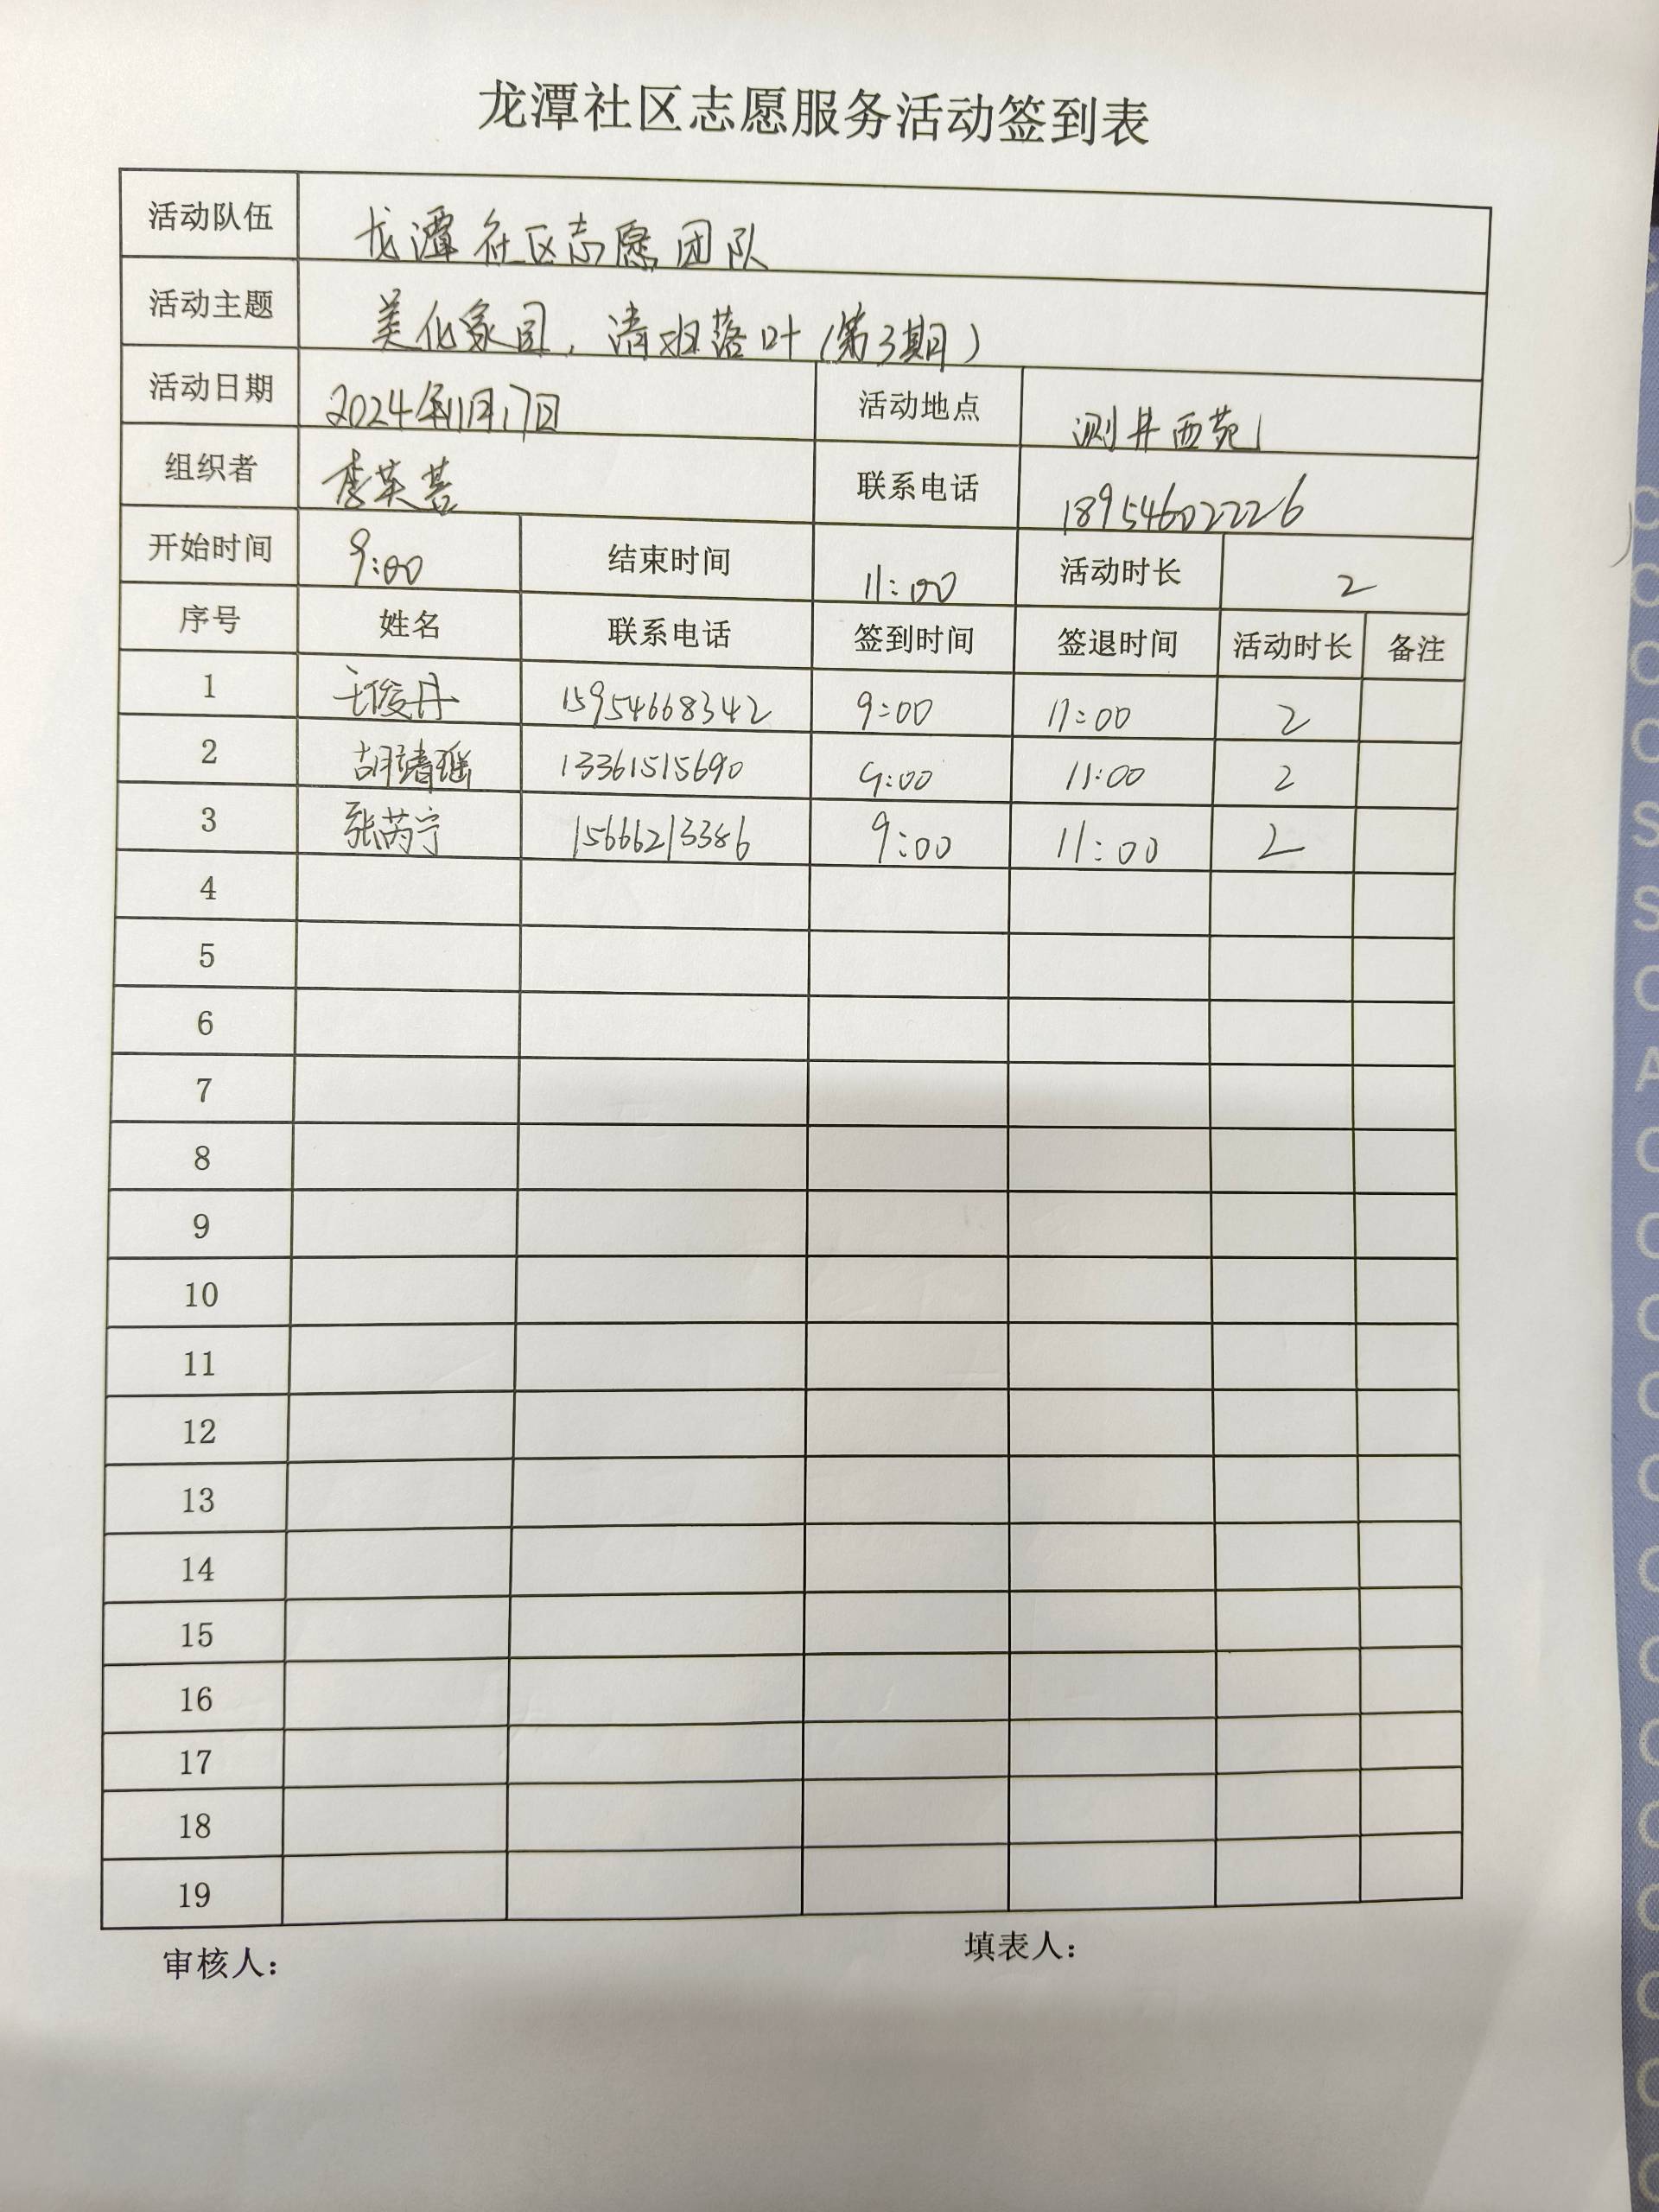 龙潭社区志愿服务活动签到表
活动队伍 龙潭社区志愿团队
活动主题 美化家园，清扫落叶（第3期）
活动日期 2024年11月17日 活动地点 测井西苑
组织者 李英 联系电话 18954602226
开始时间 9:00 结束时间 11:00 活动时长 2
序号 姓名 联系电话 签到时间 签退时间 活动时长 备注
1 王俊丹 15954668342 9:00 11:00 2
2 胡靖瑶 13361515690 9:00 11:00 2
3 张芮宁 15666213386 9:00 11:00 2
4
5
6
7
8
9
10
11
12
13
14
15
16
17
18
19
审核人： 填表人：